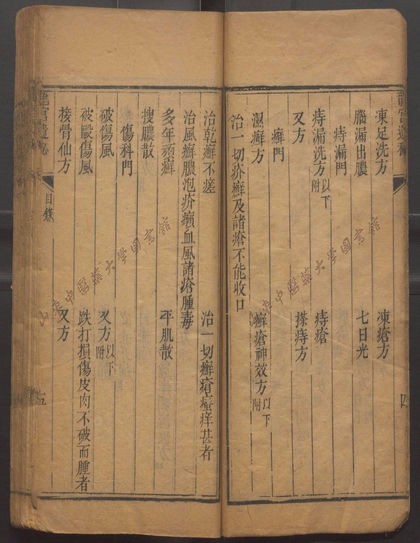 凍足洗方 凍瘡方
腦漏出膿 七日光
痔漏門
痔漏洗方以下附 痔瘡
又方 搽痔方
癬門
濕癬方 癬瘡神效方以下附
治一切疥癬及諸瘡不能收口
治乾癬不瘥 治一切癬瘡癢甚者
治風癬膿泡疥癩血風諸瘡腫毒
多年頑癬 平肌散
搜膿散
傷科門
破傷風 又方以下附
破毆傷風 跌打損傷皮肉不破而腫者
接骨仙方 又方
目錄
五
四